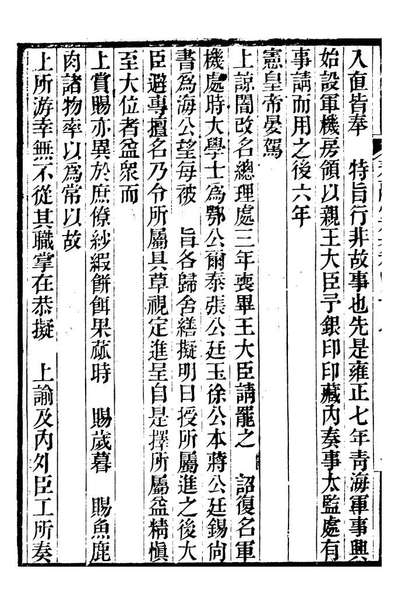 入直皆奉　特旨行非故事也先是雍正七年青海軍事興
始設軍機房領以親王大臣予銀印印藏內奏事太監處有
事請而用之後六年
憲皇帝晏駕
上諒闇改名總理處三年喪畢王大臣請罷之　詔復名軍
機處時大學士為鄂公爾泰張公廷玉徐公本蔣公廷錫尚
書為海公望每被　旨各歸舍繕擬明日授所屬進之後大
臣避專擅名乃令所屬具草視定進呈自是擇所屬益精慎
至大位者益衆而
上賞賜亦異於庶僚紗緞餅餌果蓏時　賜歲暮　賜魚鹿
肉諸物率以為常以故
上所游幸無不從其職掌在恭擬　上諭及內外臣工所奏